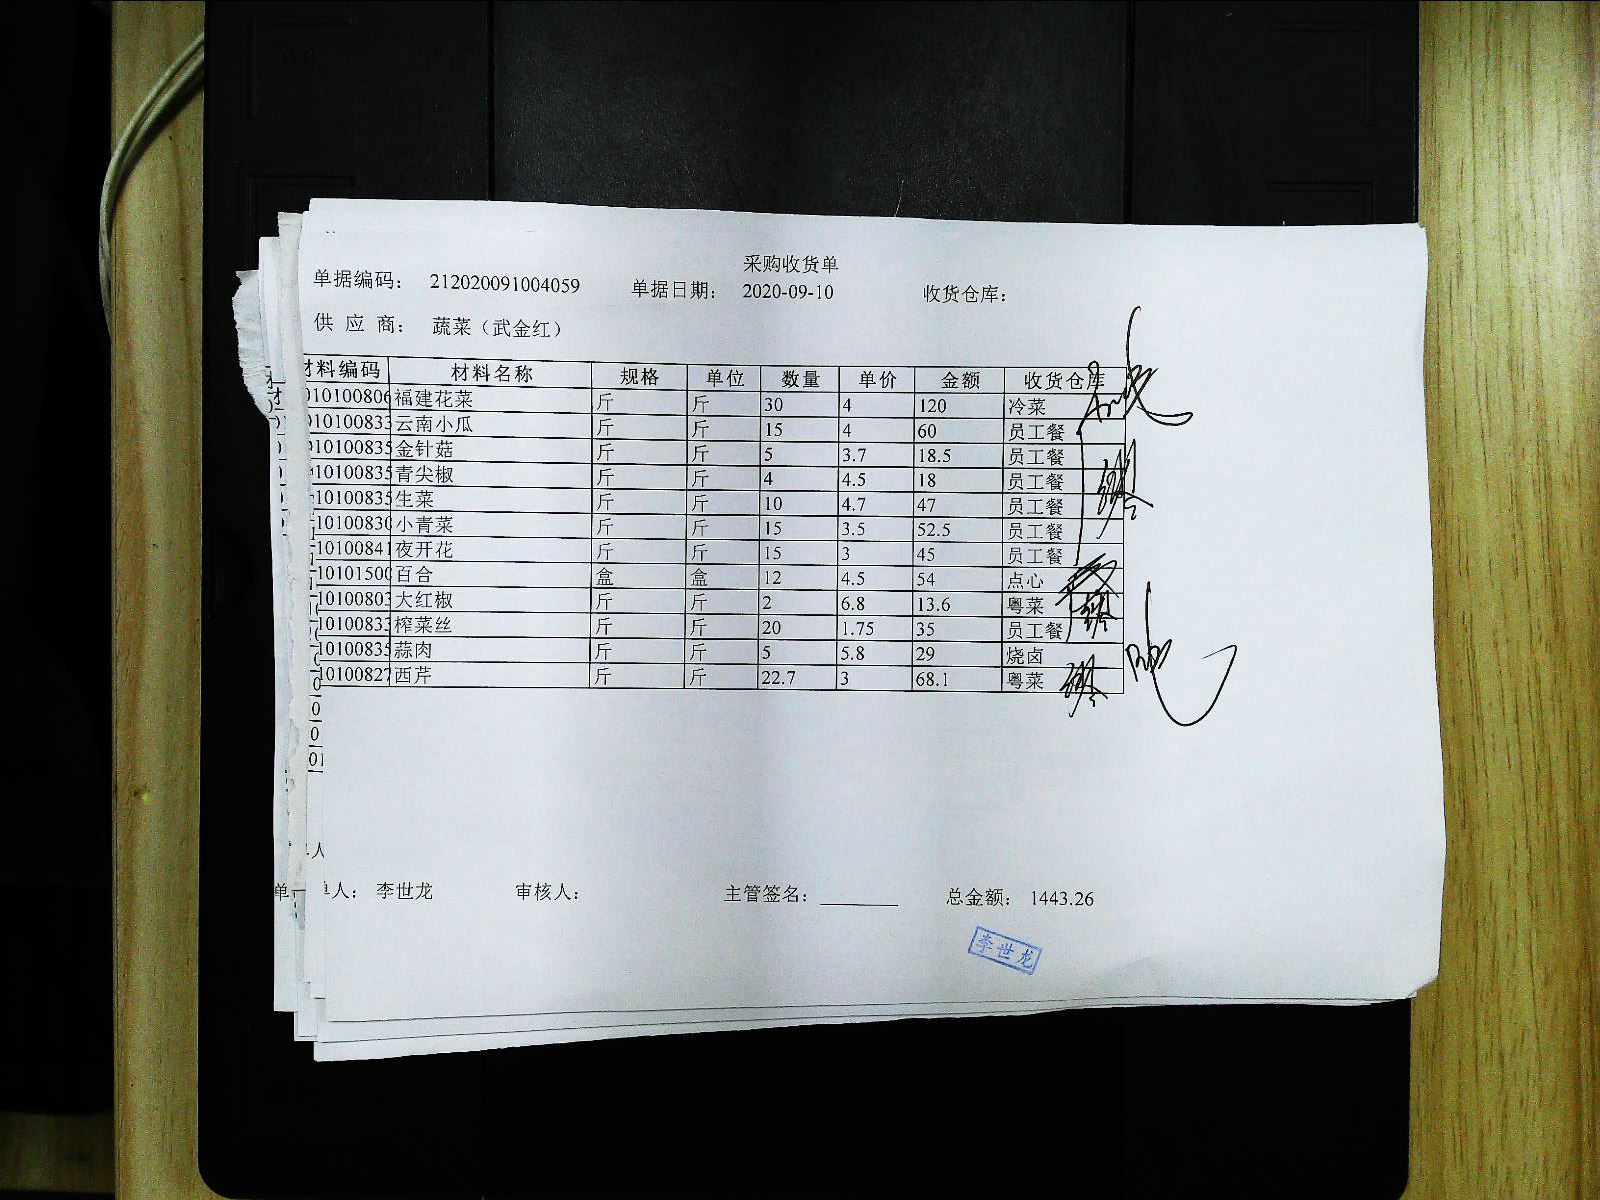 采购收货单
单据编码： 212020091004059 单据日期： 2020-09-10 收货仓库：
供 应 商： 蔬菜（武金红）
材料编码 材料名称 规格 单位 数量 单价 金额 收货仓库
10100806 福建花菜 斤 斤 30 4 120 冷菜
10100833 云南小瓜 斤 斤 15 4 60 员工餐
10100835 金针菇 斤 斤 5 3.7 18.5 员工餐
10100835 青尖椒 斤 斤 4 4.5 18 员工餐
10100835 生菜 斤 斤 10 4.7 47 员工餐
10100830 小青菜 斤 斤 15 3.5 52.5 员工餐
10100841 夜开花 斤 斤 15 3 45 员工餐
10101500 百合 盒 盒 12 4.5 54 点心
10100803 大红椒 斤 斤 2 6.8 13.6 粤菜
10100833 榨菜丝 斤 斤 20 1.75 35 员工餐
10100835 蒜肉 斤 斤 5 5.8 29 烧卤
10100827 西芹 斤 斤 22.7 3 68.1 粤菜
单人： 李世龙 审核人： 主管签名： 总金额： 1443.26
李世龙